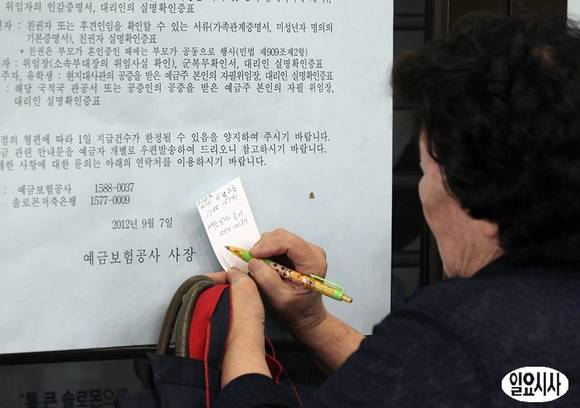 위임장의 인감증명서, 대리인의 실명확인증표
자 : 친권자 또는 후견인임을 확인할 수 있는 서류(가족관계증명서, 미성년자 명의의
기본증명서), 친권자 실명확인증표
* 친권은 부모가 혼인중인 때에는 부모가 공동으로 행사(민법 제909조제2항)
: 위임장(소속부대장의 위임사실 확인), 군복무확인서, 대리인 실명확인증표
주자, 유학생 : 현지대사관의 공증을 받은 예금주 본인의 자필위임장, 대리인 실명확인증표
: 해당 국적국 관공서 또는 공증인의 공증을 받은 예금주 본인의 자필 위임장,
대리인 실명확인증표
점의 형편에 따라 1일 지급건수가 한정될 수 있음을 양지하여 주시기 바랍니다.
금 관련 안내문을 예금자 개별로 우편발송하여 드리오니 참고하시기 바랍니다.
한 사항에 대한 문의는 아래의 연락처를 이용하시기 바랍니다.
: 예금보험공사 1588-0037
솔로몬저축은행 1577-0009
2012년 9월 7일
예금보험공사 사장
"통 큰 솔로몬으로
일요시사